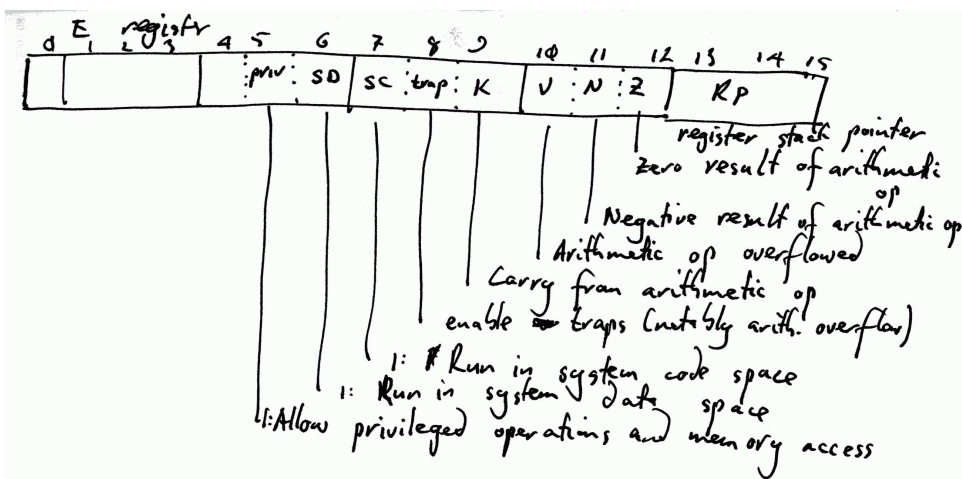 E register
0 1 2 3 4 5 6 7 8 9 10 11 12 13 14 15
priv SD SC trap K V N Z RP
register stack pointer
Zero result of arithmetic
op
Negative result of arithmetic op
Arithmetic op overflowed
Carry from arithmetic op
enable traps (notably arith. overflow)
1: Run in system code space
1: Run in system data space
1: Allow privileged operations and memory access